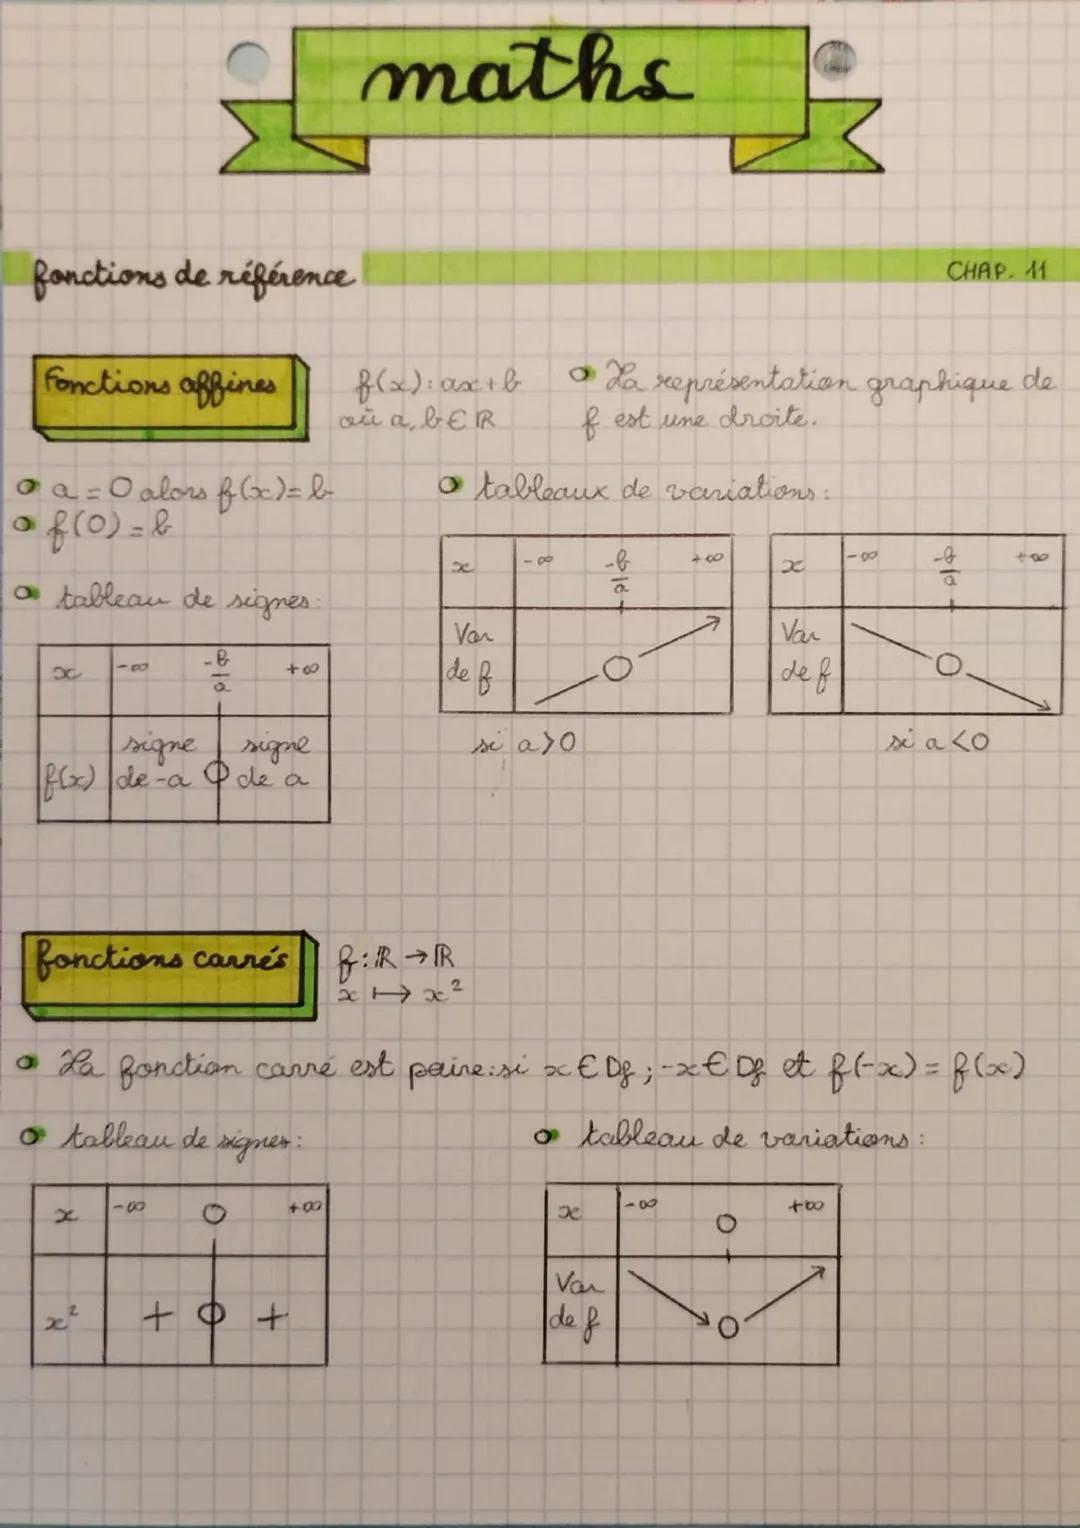 maths
fonctions de référence
CHAP. 11
Fonctions affines
f(x): ax+b
où a, b ∈ ℝ
La représentation graphique de
f est une droite.
a = 0 alors f(x) = b
f(0) = b
tableau de signes:
x -∞ -b/a +∞
f(x) signe de -a 0 signe de a
tableaux de variations:
x -∞ -b/a +∞
Var de f 0
si a>0
x -∞ -b/a +∞
Var de f 0
si a<0
fonctions carrés
f: ℝ → ℝ
x ↦ x²
La fonction carré est paire: si x ∈ Df ; -x ∈ Df et f(-x) = f(x)
tableau de signes:
x -∞ 0 +∞
x² + 0 +
tableau de variations:
x -∞ 0 +∞
Var de f 0